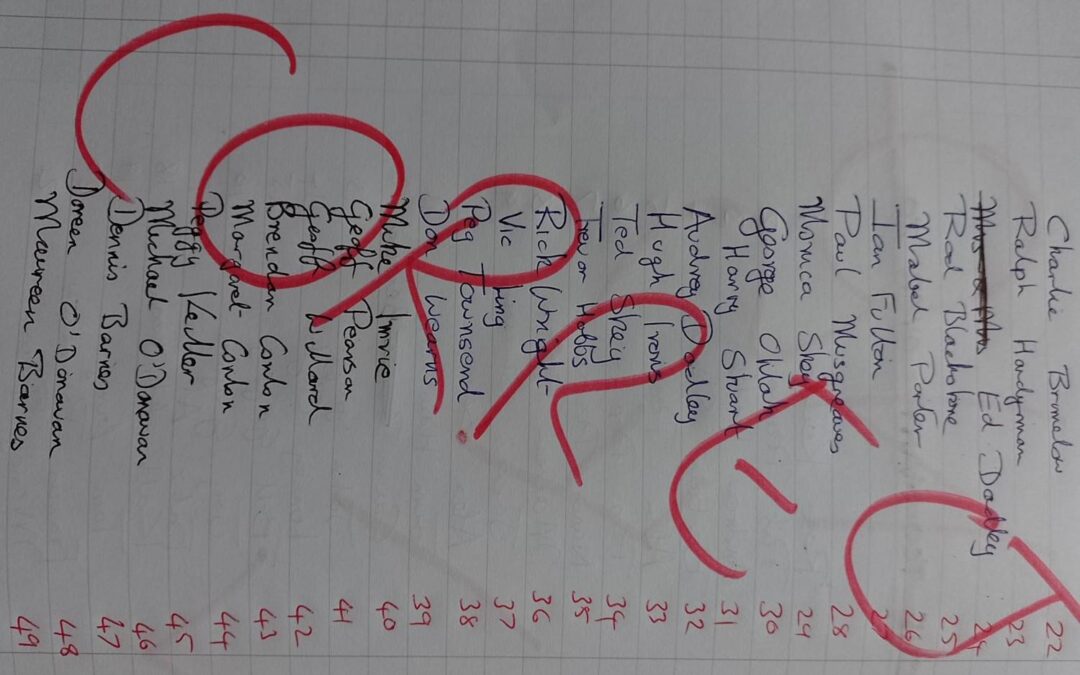 Charlie Bromelow 22
Ralph Hardyman 23
Ed Dadley 24
Rod Blackstone 25
Mabel Porter 26
Ian Fulton 27
Paul Musgreaves 28
Monica Skey 29
George Oldah 30
Harry Stuart 31
Audrey Dadley 32
Hugh Irons 33
Ted Skey 34
Trevor Hobbs 35
Rick Wright 36
Vic Ting 37
Peg Townsend 38
Don Wearns 39
Mike Imrie 40
Geoff Pearson 41
Geoff Willard 42
Brendan Conlon 43
Margaret Conlon 44
Peggy Keller 45
Michael O'Donavan 46
Dennis Barnes 47
Doreen O'Donavan 48
Maureen Barnes 49
CORRECT